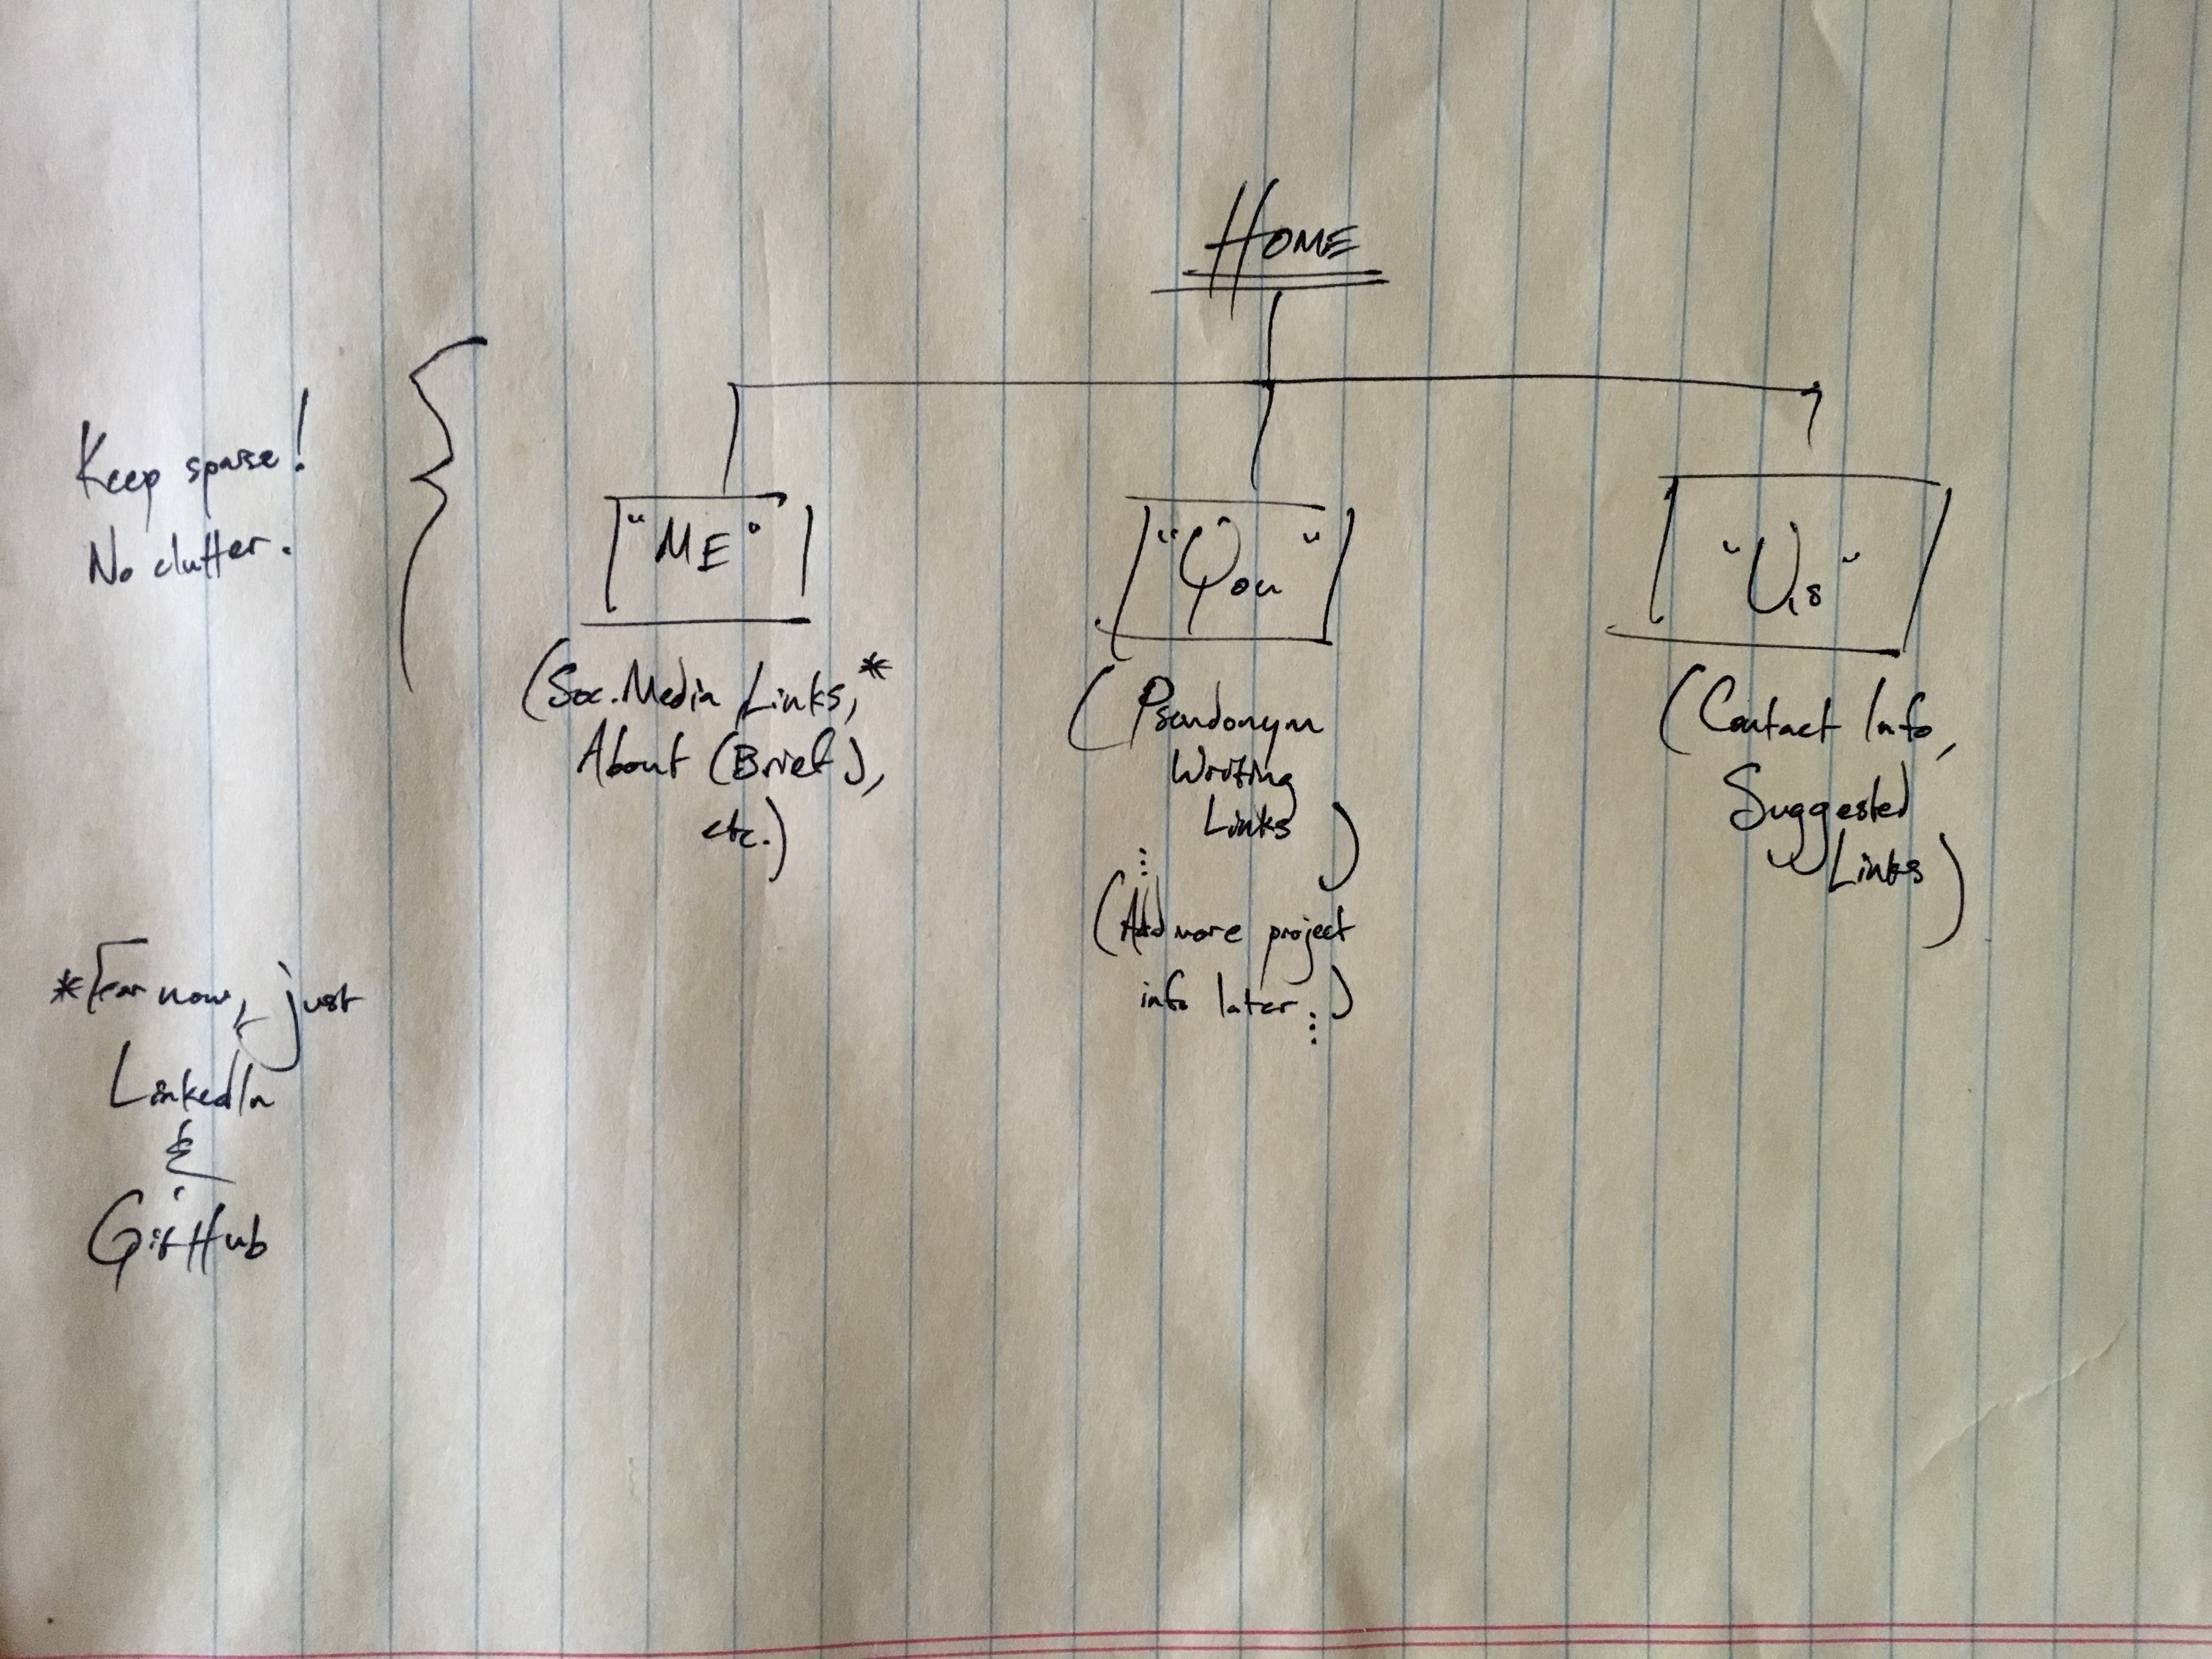 HOME
Keep sparse!
No clutter.
"ME"
(Soc. Media Links,*
About (Brief),
etc.)
"You"
(Pseudonym
Writing
Links)
(Add more project
info later...)
"Us"
(Contact Info,
Suggested
Links)
*For now, just
LinkedIn
&
GitHub